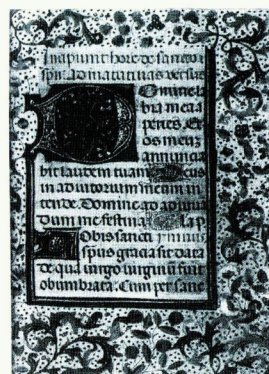 Incipiunt hore de sancto
spu. Ad matutinas versus
Domine la
bia mea a
peries. Et
os meum
annuncia
bit laudem tuam Deus
in adiutorium meum in
tende. Domine ad adiuua
dum me festina. Gla p
Nobis sancti ymnus
spus gracia sit data
de qua uirgo uirginum fuit
obumbrata. Cum per sanc